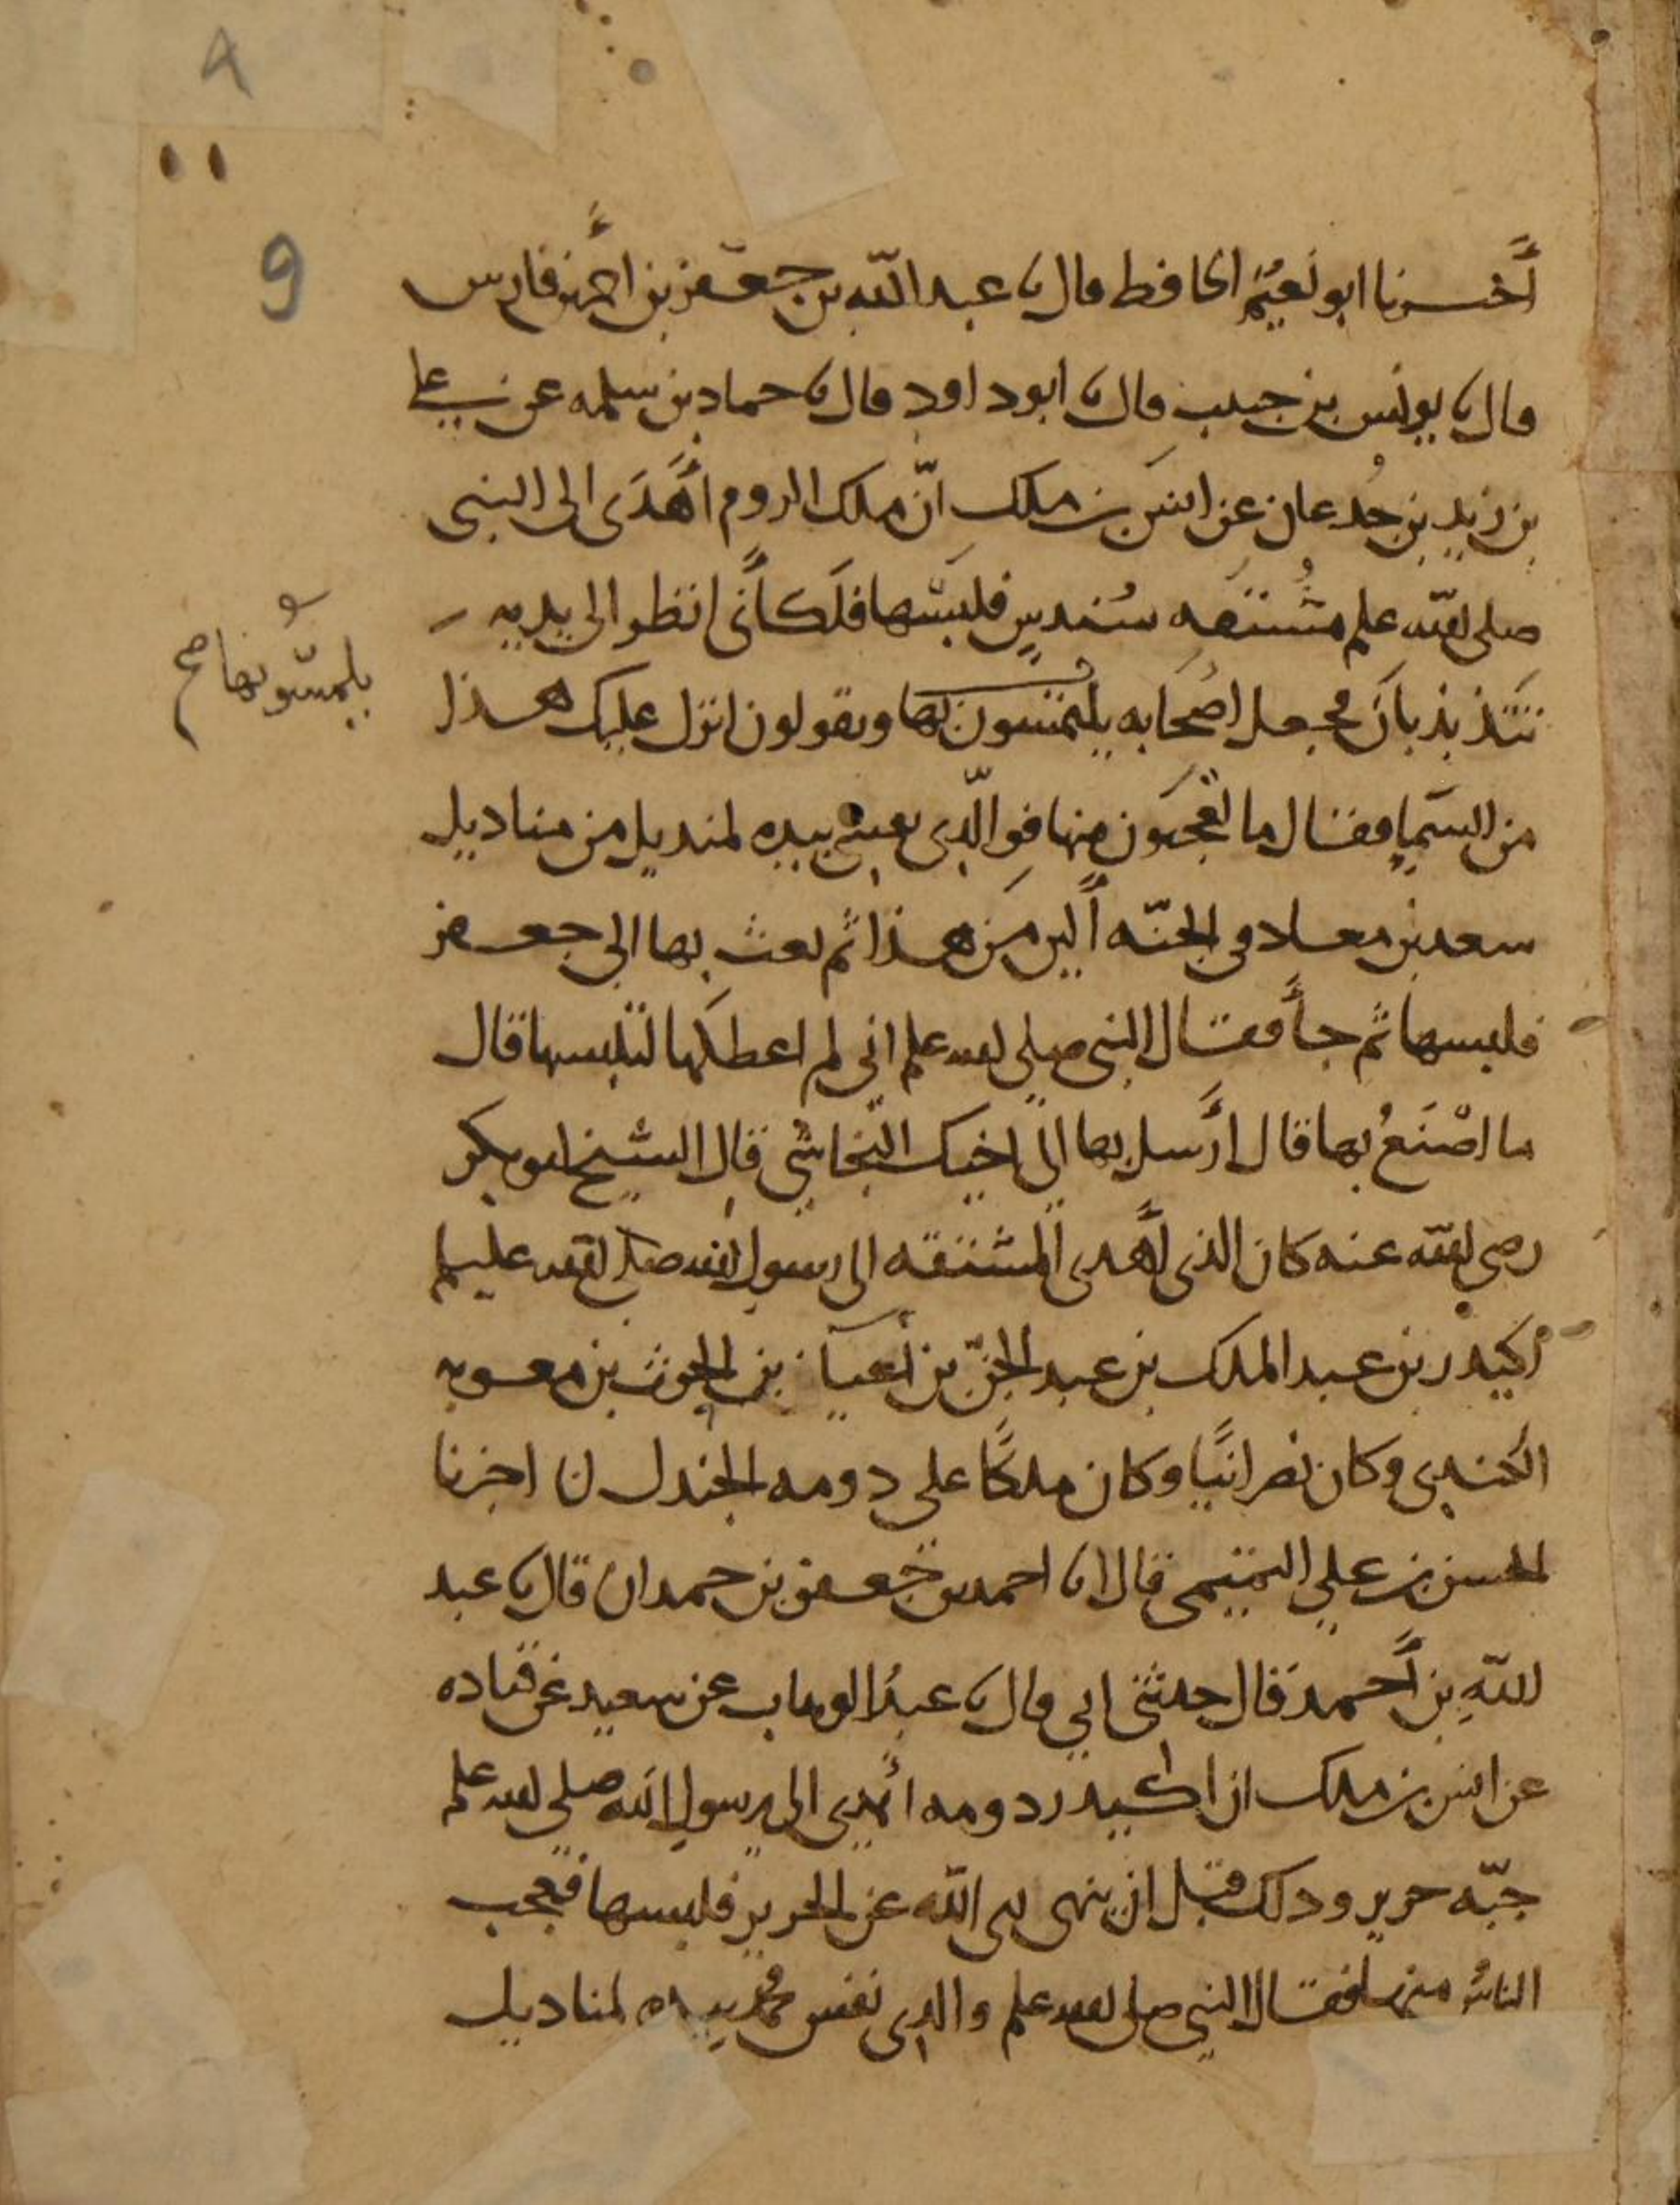 ٨
9
أخبرنا ابو نعيم الحافظ قال نا عبد الله بن جعفر بن احمد بن فارس
قال نا يونس بن حبيب قال نا ابو داود قال نا حماد بن سلمه عن علي
بن زيد بن جدعان عن انس بن ملك انّ ملك الروم أهدَى الى النبي
صلى الله عليه وسلم مُستقه سُندسٍ فلبسها فلكأنّي انظر الى يديه
تتذبذبان فجعل اصحابه يلتمسون بها ويقولون انزل عليك هذا
يلمسُونها صح
من السماء فقال ما تعجبون منها فوالّذي نفسي بيده لمنديل من مناديل
سعد بن معاد في الجنّه ألين من هذا ثم بعث بها الى جعفر
فلبسها ثم جأ فقال النبي صلى الله عليه وسلم اني لم اعطكها لتلبسها قال
ما اصْنَعُ بها قال أرسل بها الى اخيك النجاشي قال الشيخ ابو بكر
رضي الله عنه كان الذي أهدى المستقه الى رسول الله صلى الله عليه وسلم
اكيدر بن عبد الملك بن عبد الجنّ بن أعيا بن الحرث بن معويه
الكندي وكان نصرانيًّا وكان ملكًا على دومه الجندل ن اخبرنا
الحسن بن علي التميمي قال انا احمد بن جعفر بن حمدان قال نا عبد
اللهِ بن أحمد قال حدثني ابي قال نا عبدُ الوهاب عن سعيد عن قتاده
عن انس بن ملك ان اكيدر دومه أهدى الى رسول الله صلى الله عليه وسلم
جبّه حرير وذلك قبل ان ينهى نبي الله عن الحرير فلبسها فعجب
الناسُ منها فقال النبي صلى الله عليه وسلم والذي نفس محمد بيده لمناديل